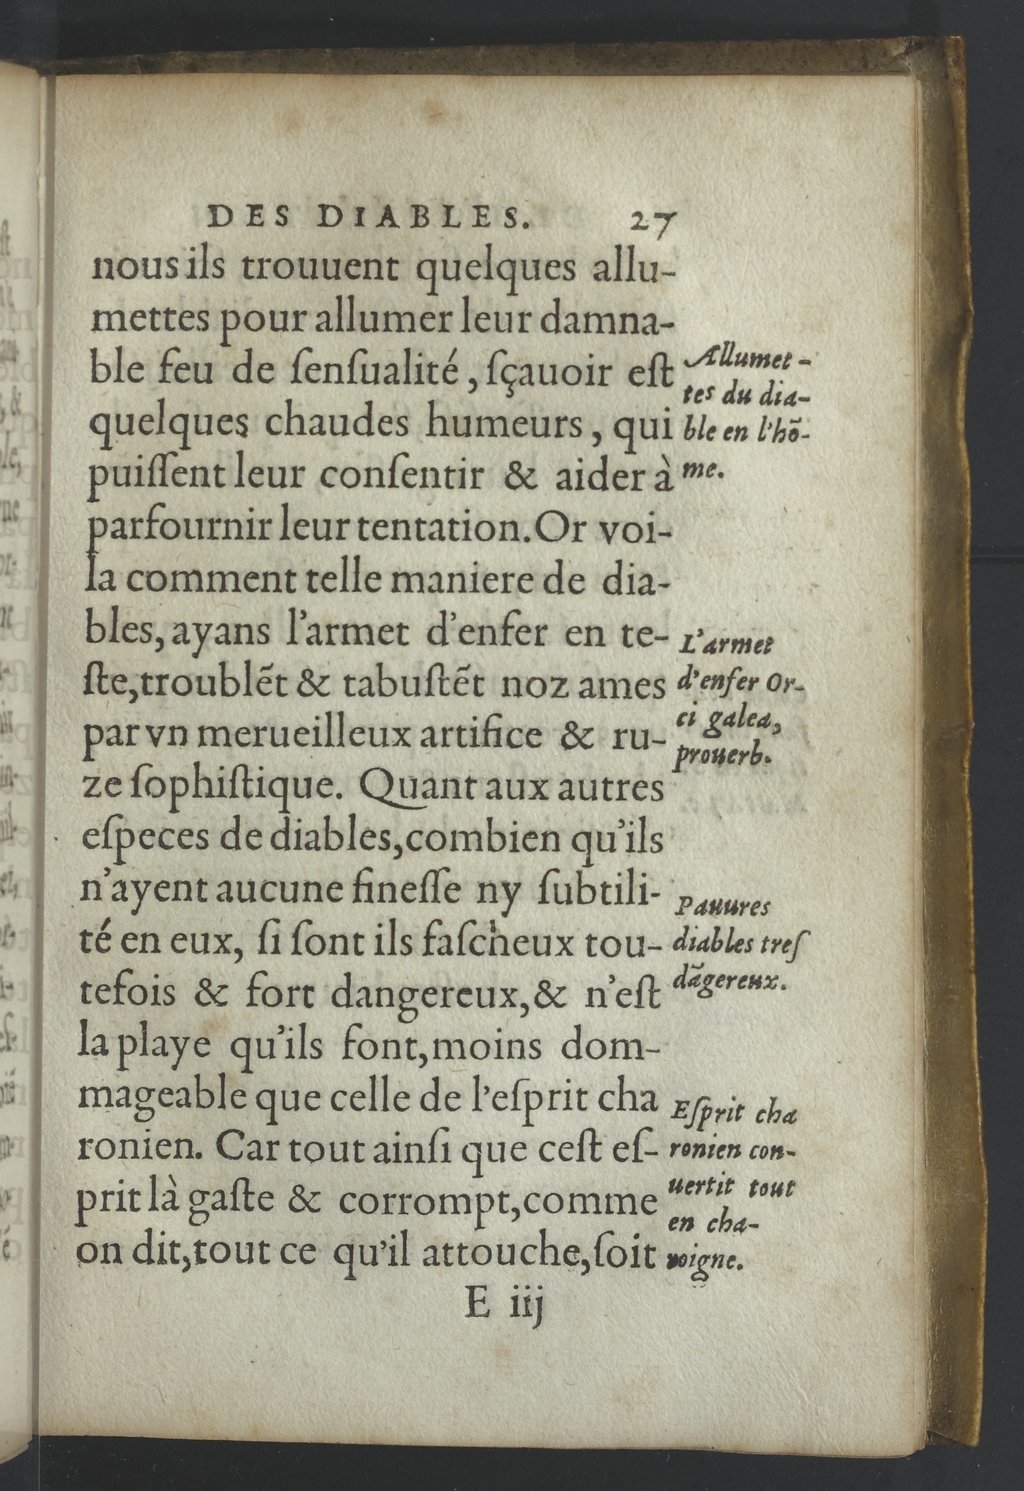 DES DIABLES. 27
nous ils trouuent quelques allu-
mettes pour allumer leur damna-
ble feu de ſenſualité, ſçauoir eſt
quelques chaudes humeurs, qui
puiſſent leur conſentir & aider à
parfournir leur tentation. Or voi-
la comment telle maniere de dia-
bles, ayans l'armet d'enfer en te-
ſte, troublẽt & tabuſtẽt noz ames
par vn merueilleux artifice & ru-
ze ſophiſtique. Quant aux autres
eſpeces de diables, combien qu'ils
n'ayent aucune fineſſe ny ſubtili-
té en eux, ſi ſont ils faſcheux tou-
tefois & fort dangereux, & n'eſt
la playe qu'ils font, moins dom-
mageable que celle de l'eſprit cha
ronien. Car tout ainſi que ceſt eſ-
prit là gaſte & corrompt, comme
on dit, tout ce qu'il attouche, ſoit
E iij
Allumet-
tes du dia-
ble en l'hõ-
me.
L'armet
d'enfer Or-
ci galea,
prouerb.
Pauures
diables treſ
dãgereux.
Eſprit cha
ronien con-
uertit tout
en cha-
roigne.